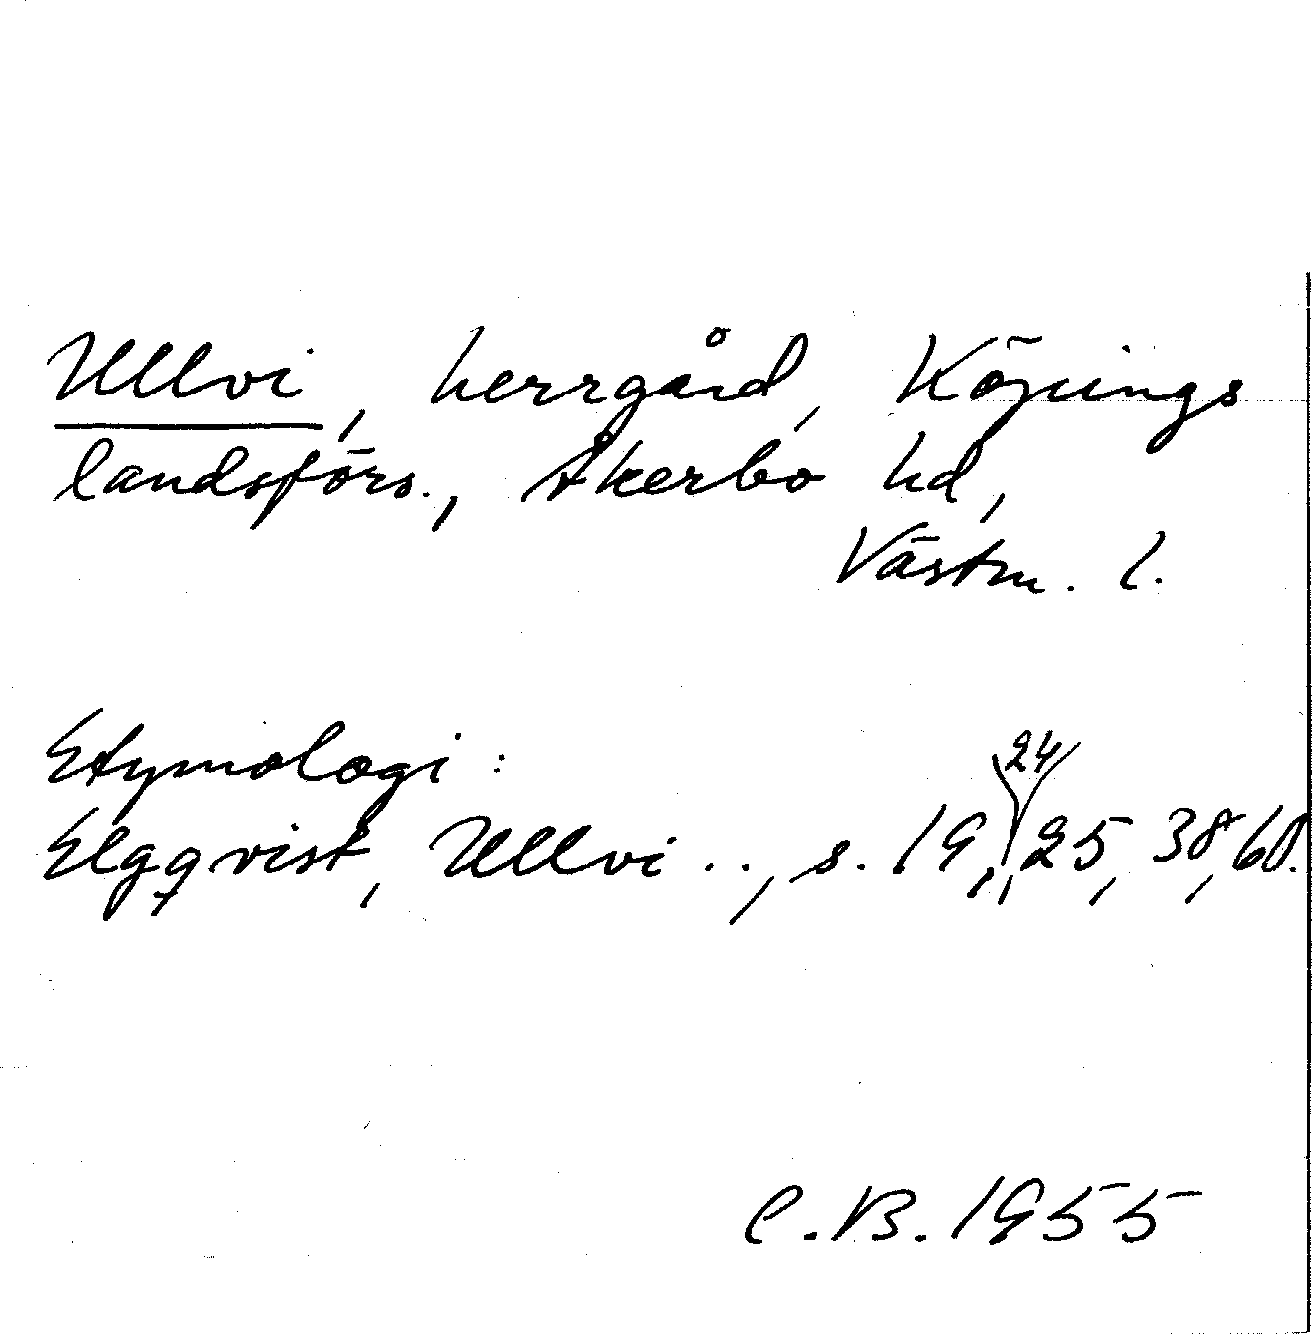 Ullvi, herrgård, Köpings
landsförs., Åkerbo hd,
Västm. l.
Etymologi:
Elgqvist, Ullvi .., s. 19, 24, 25, 38, 60.
C.B. 1955